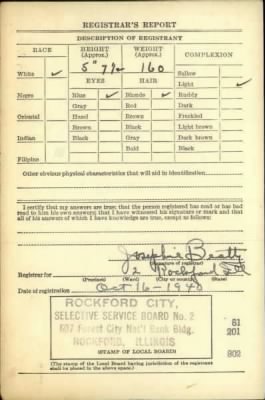 REGISTRAR'S REPORT
DESCRIPTION OF REGISTRANT
RACE HEIGHT (Approx.) WEIGHT (Approx.) COMPLEXION
5" 7½ 160
White ✓ Sallow
EYES HAIR Light ✓
Negro Blue ✓ Blonde ✓ Ruddy
Gray Red Dark
Oriental Hazel Brown Freckled
Brown Black Light brown
Indian Black Gray Dark brown
Bald Black
Filipino
Other obvious physical characteristics that will aid in identification
I certify that my answers are true; that the person registered has read or has had
read to him his own answers; that I have witnessed his signature or mark and that
all of his answers of which I have knowledge are true, except as follows:
Josephine Beatty
(Signature of registrar)
Registrar for 2 Rockford Ill
(Precinct) (Ward) (City or county) (State)
Date of registration Oct 16-1940
ROCKFORD CITY,
SELECTIVE SERVICE BOARD No. 2
607 Forest City Nat'l Bank Bldg.
ROCKFORD, ILLINOIS
51
201
802
(STAMP OF LOCAL BOARD)
(The stamp of the Local Board having jurisdiction of the registrant
shall be placed in the above space.)